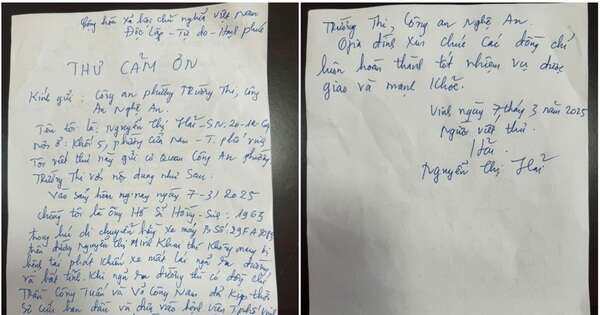 Cộng hòa xã hội chủ nghĩa Việt Nam
Độc Lập - Tự do - Hạnh phúc
THƯ CẢM ƠN
Kính gửi : Công an phường Trường Thi, Công
An Nghệ An.
Tên tôi là Nguyễn Thị Hải - SN:
nơi ở : Khối 5, phường cửa nam - T. phố vinh
Tôi viết thư này gửi cơ quan Công An phường
Trường Thi với nội dung như sau:
Vào sáng hôm nay ngày 7-3/2025
chồng tôi là ông Hồ Sĩ Hồng - Sinh : 1963
trong lúc di chuyển bằng xe máy
trên đường Nguyễn Thị Minh Khai thì không may bị
bệnh tái phát khiến xe mất lái ngã ra đường
và bất tỉnh. Khi ngã ra đường thì có đồng chí
Trần Công Tuấn và Võ Công Nam đã kịp thời
Sơ cứu ban đầu và đưa vào bệnh viện T.phố vinh
Trường Thi, Công an Nghệ An.
Gia đình xin chúc các đồng chí
luôn hoàn thành tốt nhiệm vụ được
giao và mạnh khỏe.
Vinh ngày 7 tháng 3 năm 2025
Người viết thư
Hải
Nguyễn Thị Hải